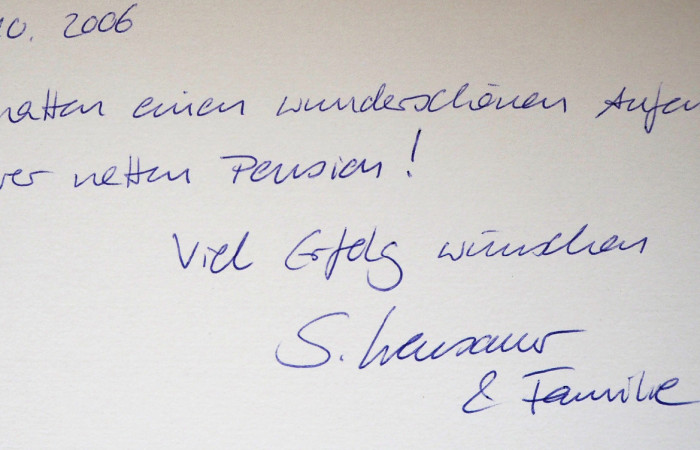 10. 2006
hatten einen wunderschönen Aufen
rer netten Pension!
Viel Erfolg wünschen
S.
& Familie